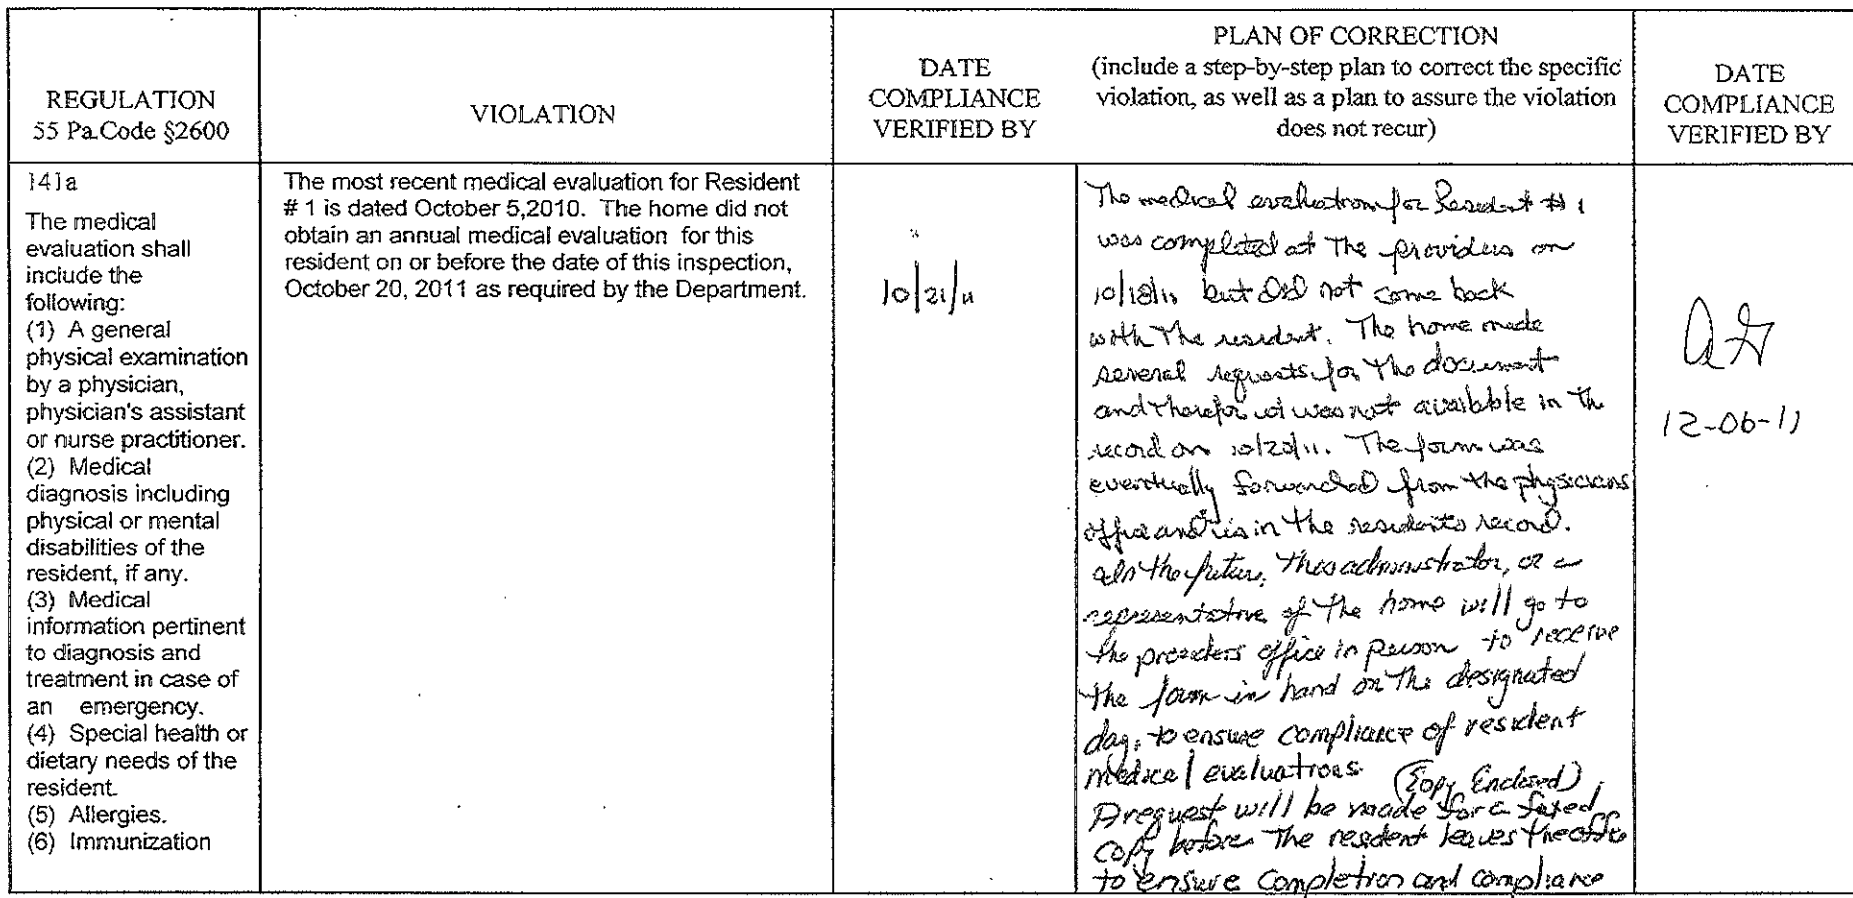 REGULATION
55 Pa.Code §2600
VIOLATION
DATE
COMPLIANCE
VERIFIED BY
PLAN OF CORRECTION
(include a step-by-step plan to correct the specific
violation, as well as a plan to assure the violation
does not recur)
DATE
COMPLIANCE
VERIFIED BY
141a
The medical
evaluation shall
include the
following:
(1) A general
physical examination
by a physician,
physician's assistant
or nurse practitioner.
(2) Medical
diagnosis including
physical or mental
disabilities of the
resident, if any.
(3) Medical
information pertinent
to diagnosis and
treatment in case of
an emergency.
(4) Special health or
dietary needs of the
resident.
(5) Allergies.
(6) Immunization
The most recent medical evaluation for Resident
# 1 is dated October 5,2010. The home did not
obtain an annual medical evaluation for this
resident on or before the date of this inspection,
October 20, 2011 as required by the Department.
10/21/11
The medical evaluation for Resident # 1
was completed at the providers on
10/18/11 but did not come back
with the resident. The home made
several requests for the document
and therefor it was not available in the
record on 10/20/11. The form was
eventually forwarded from the physicians
office and is in the residents record.
In the future, this administrator, or a
representative of the home will go to
the providers office in person to receive
the form in hand on the designated
day, to ensure compliance of resident
medical evaluations (Copy Enclosed)
A request will be made for a faxed
copy before the resident leaves the office
to ensure completion and compliance
12-06-11